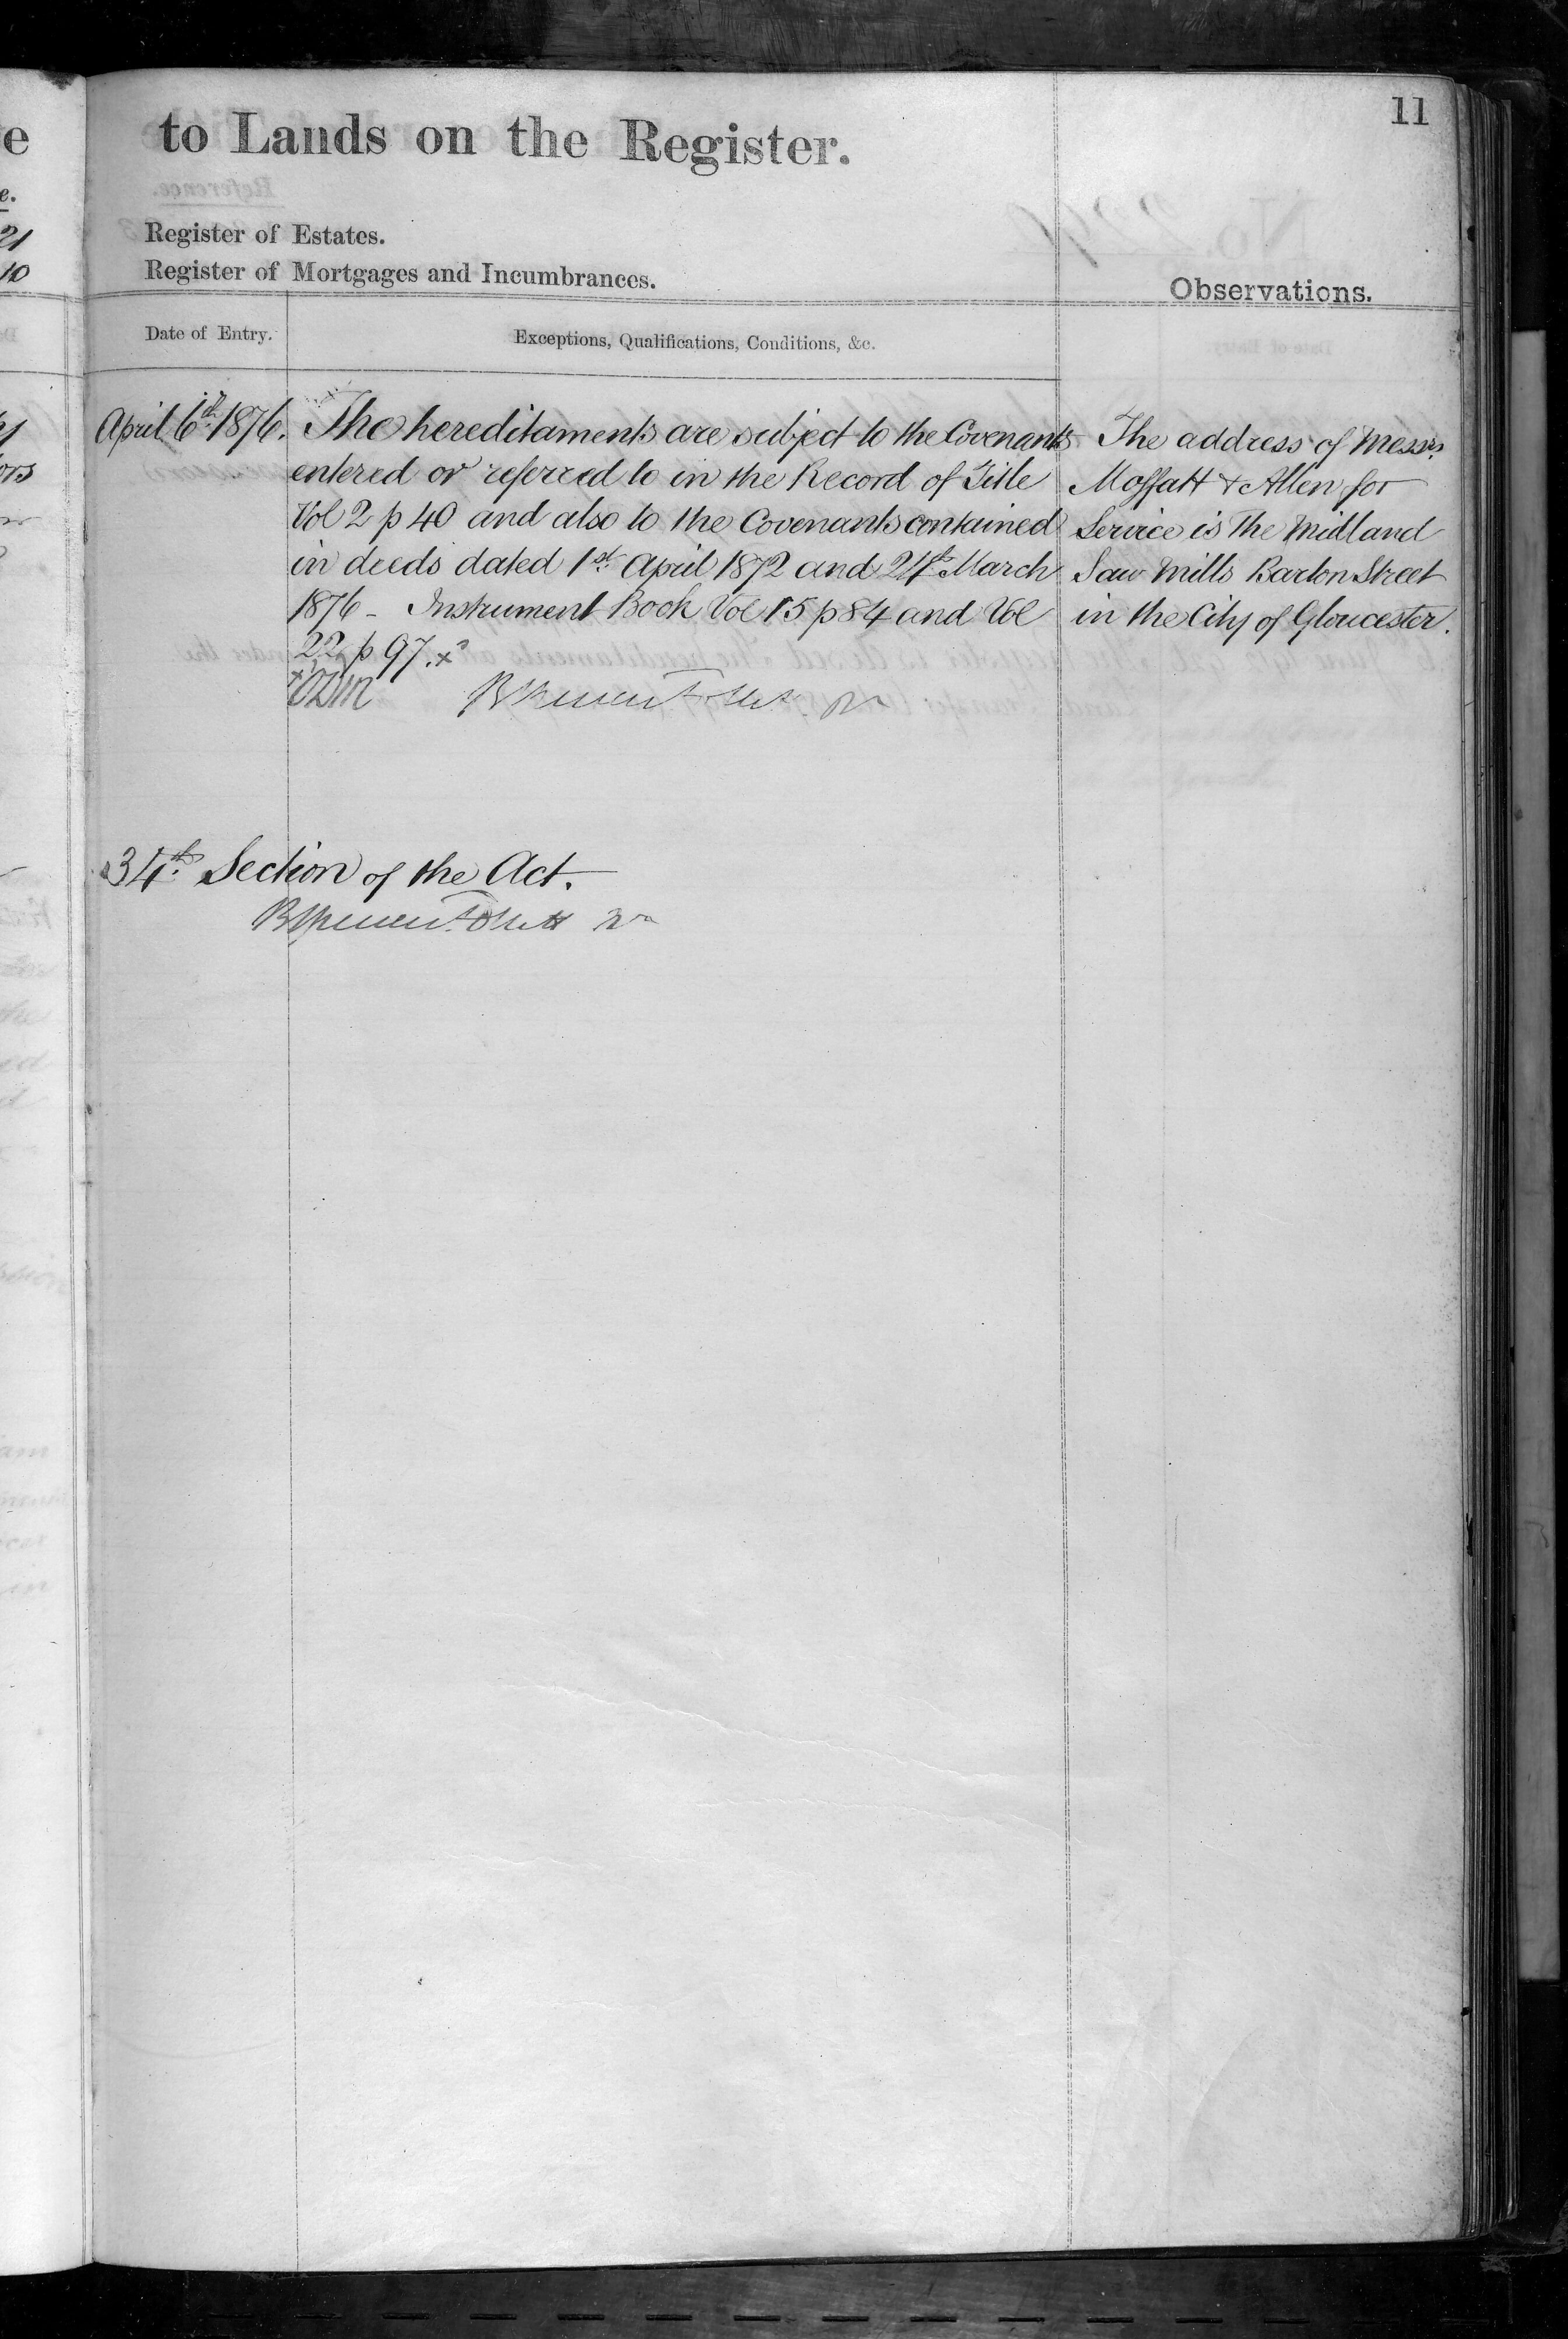 11
to Lands on the Register.
Register of Estates.
Register of Mortgages and Incumbrances.
Observations.
Date of Entry.
Exceptions, Qualifications, Conditions, &c.
April 6th 1876.
The hereditaments are subject to the Covenants
entered or referred to in the Record of Title
Vol 2 p 40 and also to the Covenants contained
in deeds dated 1st April 1872 and 24th March
1876 - Instrument Book Vol 15 p 84 and Vol
22 p 97.x
The address of Messrs
Moffatt & Allen for
Service is The Midland
Saw Mills Barton Street
in the City of Gloucester.
34th Section of the Act.
e
e.
21
10